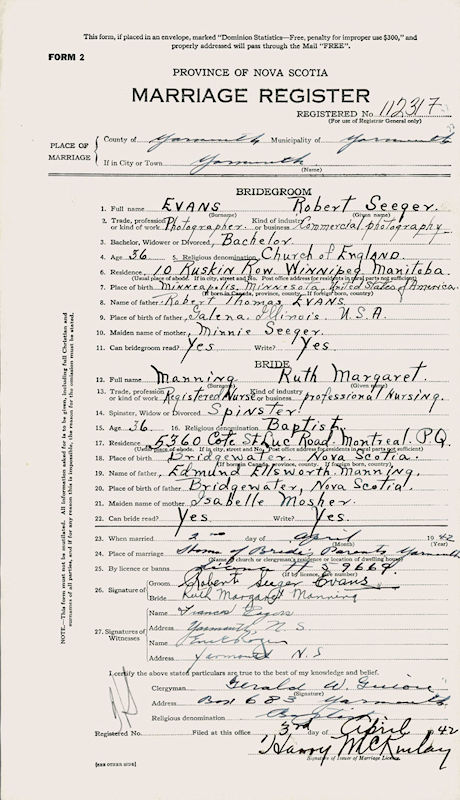 This form, if placed in an envelope, marked "Dominion Statistics—Free, penalty for improper use $300," and
properly addressed will pass through the Mail "FREE".
FORM 2
PROVINCE OF NOVA SCOTIA
MARRIAGE REGISTER
REGISTERED No. 112317
(For use of Registrar General only)
PLACE OF MARRIAGE
County of Yarmouth Municipality of Yarmouth
If in City or Town Yarmouth
(Name)
BRIDEGROOM
1. Full name EVANS Robert Seeger.
(Surname) (Given name)
2. Trade, profession or kind of work Photographer. Kind of industry or business Commercial photography
3. Bachelor, Widower or Divorced, Bachelor
4. Age 36 5. Religious denomination, Church of England.
6. Residence, 10 Ruskin Row Winnipeg Manitoba.
(Usual place of abode. If in city, street and No. Post office address for residence in rural parts not sufficient)
7. Place of birth Minneapolis, Minnesota, United States of America.
(If born in Canada, province, county. If foreign born, country)
8. Name of father, Robert Thomas EVANS
9. Place of birth of father, Galena, Illinois. U.S.A.
10. Maiden name of mother, Minnie Seeger.
11. Can bridegroom read? Yes Write? Yes.
BRIDE
12. Full name Manning Ruth Margaret.
(Surname) (Given name)
13. Trade, profession or kind of work Registered Nurse Kind of industry or business professional Nursing.
14. Spinster, Widow or Divorced Spinster
15. Age 36. 16. Religious denomination Baptist.
17. Residence 5360 Cote St Luc Road. Montreal. P.Q.
(Usual place of abode. If in city, street and No. Post office address for residence in rural parts not sufficient)
18. Place of birth Bridgewater, Nova Scotia.
(If born in Canada, province, county. If foreign born, country)
19. Name of father, Edmund Ellsworth Manning.
20. Place of birth of father, Bridgewater, Nova Scotia.
21. Maiden name of mother Isabelle Mosher.
22. Can bride read? Yes Write? Yes.
23. When married 2 day of April 1942
(Month) (Year)
24. Place of marriage Home of Bride's Parents Yarmouth
(Name of church or clergyman's residence or location of dwelling house)
25. By licence or banns S 9664
(If by licence, give number)
26. Signature of
Groom Robert Seeger Evans
Bride Ruth Margaret Manning
27. Signatures of Witnesses
Name Frances
Address Yarmouth, N.S.
Name
Address Yarmouth N.S
I certify the above stated particulars are true to the best of my knowledge and belief.
Clergyman Gerald W. Guiou
(Signature)
Address Box 683 Yarmouth
Religious denomination Baptist
Registered No. Filed at this office 3rd day of April 1942
Harry McKinlay
Signature of Issuer of Marriage Licence
NOTE.—This form must not be mutilated. All information asked for is to be given, including full Christian and
surnames of all parties, and if this is impossible, the reason for the omission must be stated.
[SEE OTHER SIDE]